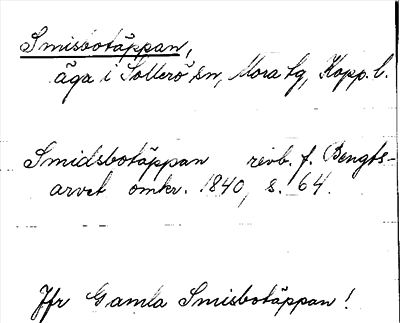 Smisbotäppan,
äga i Sollerö sn, Mora tg, Kopp. l.
Smidsbotäppan revb. f. Bengts-
arvet omkr. 1840, s. 64.
Jfr Gamla Smisbotäppan!